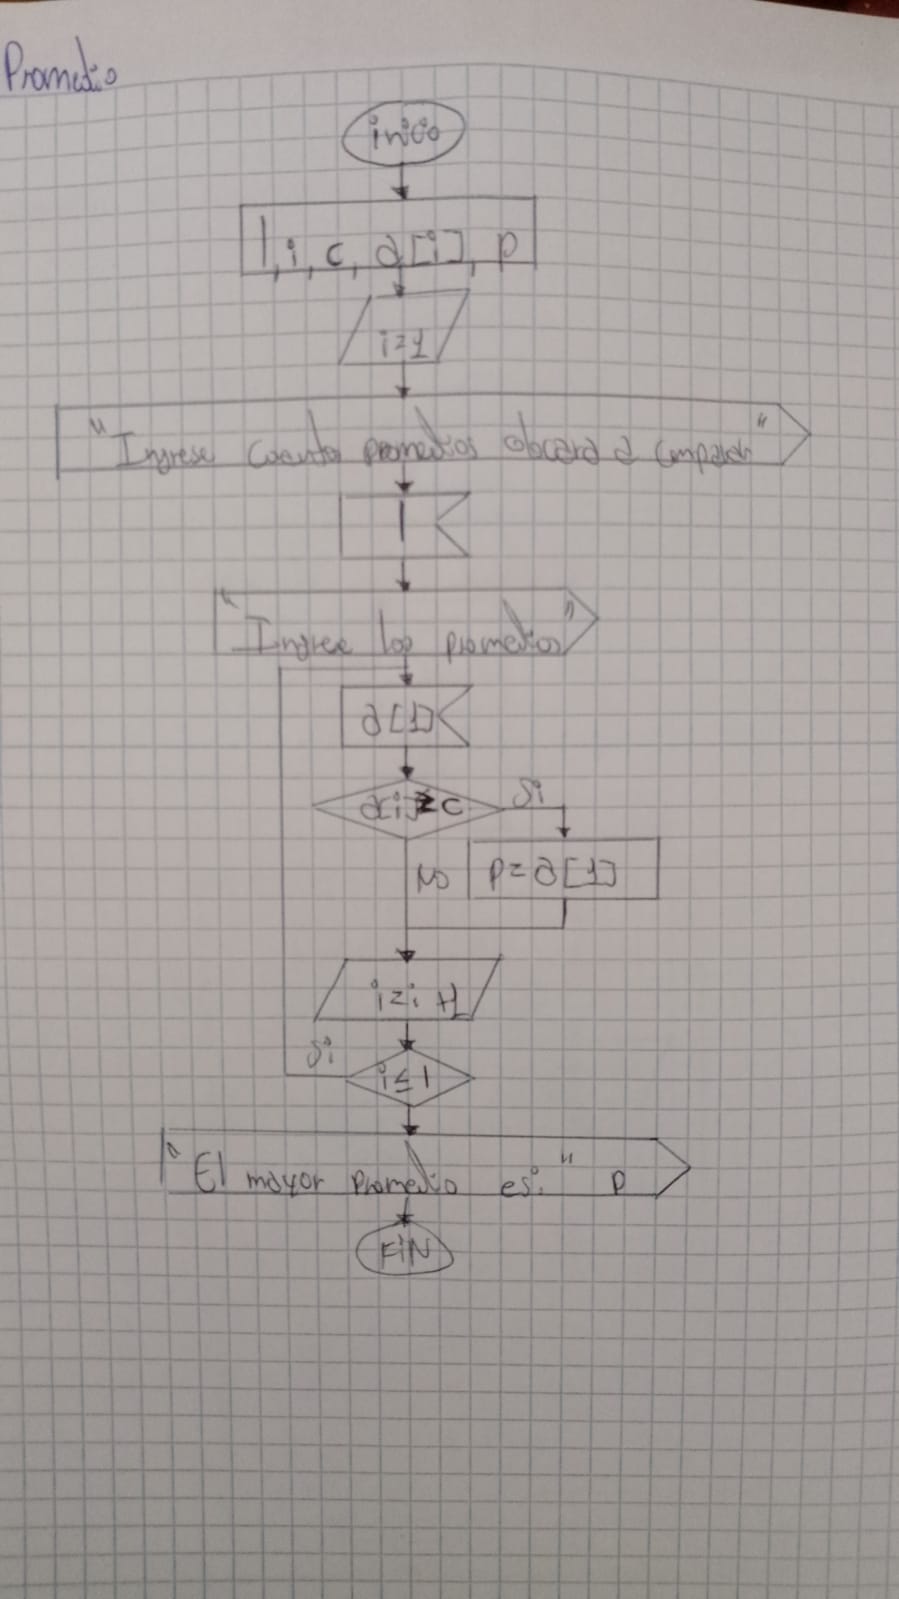 Promedio
inicio
l, i, c, a[i], p
i=1
"Ingrese cuantos promedios a comparar"
l
"Ingrese los promedios"
a[1]
a[i] c
Si
No
p=a[1]
i=i+1
Si
i≤l
"El mayor promedio es:" p
FIN